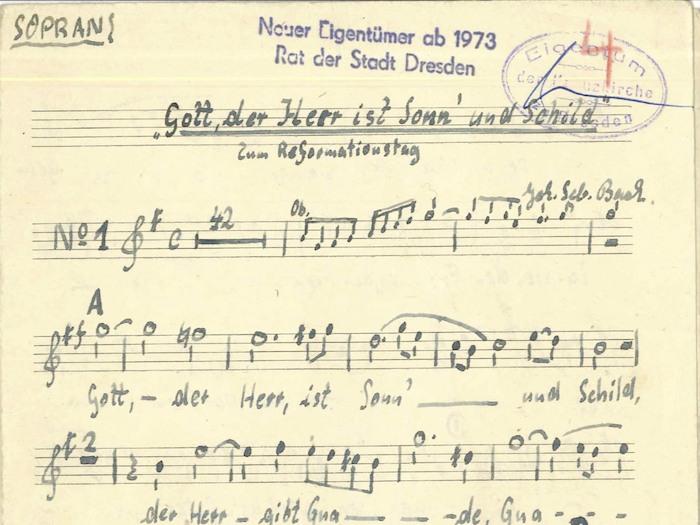 SOPRAN I
Neuer Eigentümer ab 1973
Rat der Stadt Dresden
Eigentum
der Kreuzkirche
Dresden
"Gott, der Herr ist Sonn' und Schild"
Zum Reformationstag
Joh. Seb. Bach.
No 1 c 42 Ob.
A
Gott, - der Herr, ist Sonn' und Schild,
2
der Herr - gibt Gna - - de, Gna - - -